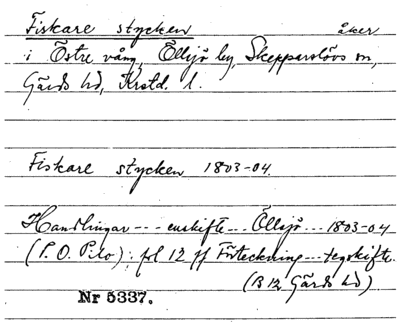 Fiskare stycken åker
i Östre vång, Öllsjö by, Skepparslövs sn,
Gärds hd, Krstd. l.
Fiskare stycken 1803-04.
Handlingar --- enskifte --- Öllsjö --- 1803-04
(P. O. Pilo): pl 12 ff Förteckning --- tegskifte.
(B 12 Gärds hd)
Nr 5337.